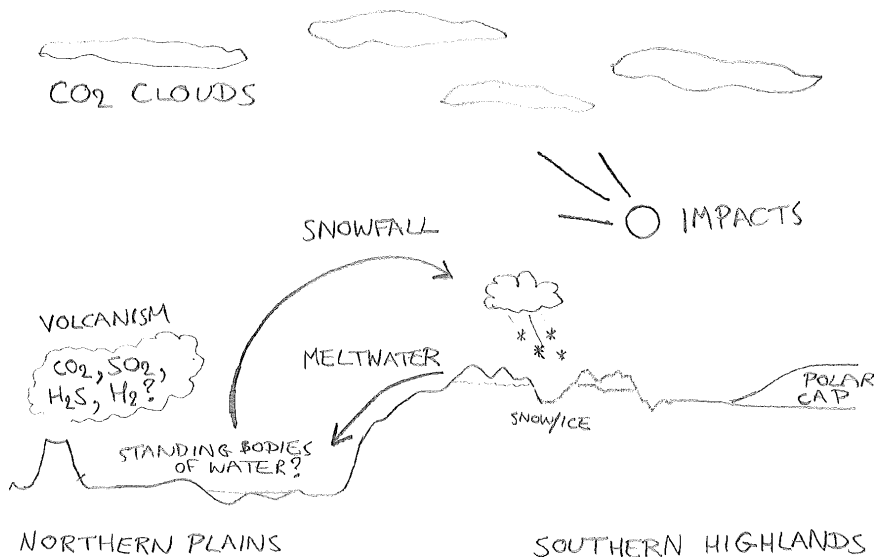 CO2 CLOUDS
IMPACTS
SNOWFALL
VOLCANISM
CO2, SO2,
H2S, H2?
MELTWATER
POLAR
CAP
SNOW/ICE
STANDING BODIES
OF WATER?
NORTHERN PLAINS
SOUTHERN HIGHLANDS